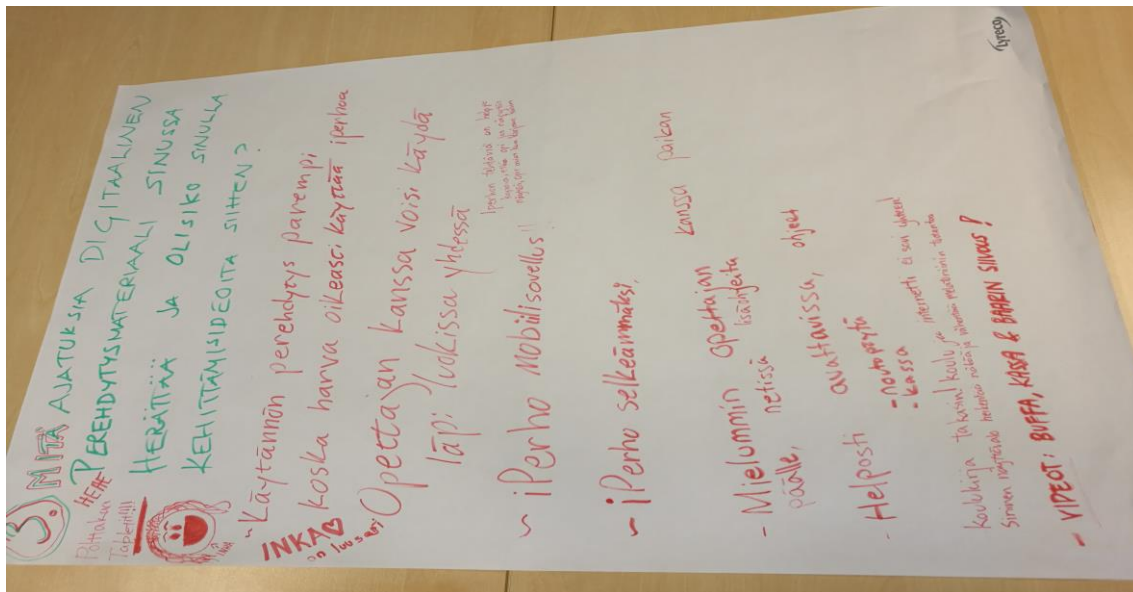 3. MITÄ AJATUKSIA DIGITAALINEN
PEREHDYTYSMATERIAALI SINUSSA
HERÄTTÄÄ JA OLISIKO SINULLA
KEHITTÄMISIDEOITA SIIHEN?
HEHE
Tabletit!!!!
~Käytännön perehdytys parempi
koska harva oikeasti käyttää iperhoa
INKA B
on luuseri
Opettajan kanssa voisi käydä
läpi luokissa yhdessä
~ iPerho mobiilisovellus!!
~ iPerho selkeämmäksi,
- Mielummin opettajan kanssa paikan
päälle, netissä lisäohjeita
- Helposti avattavissa, ohjeet
- noutopöytä
- kassa
Koulukirja takaisin! koulu ja internetti ei sovi yhteen!
Sininen näyttövalo heikentää näköä ja vähentää melatoniinin tuotantoa
- VIDEOT: BUFFA, KASSA & BAARIN SIIVOUS!
Lyreco